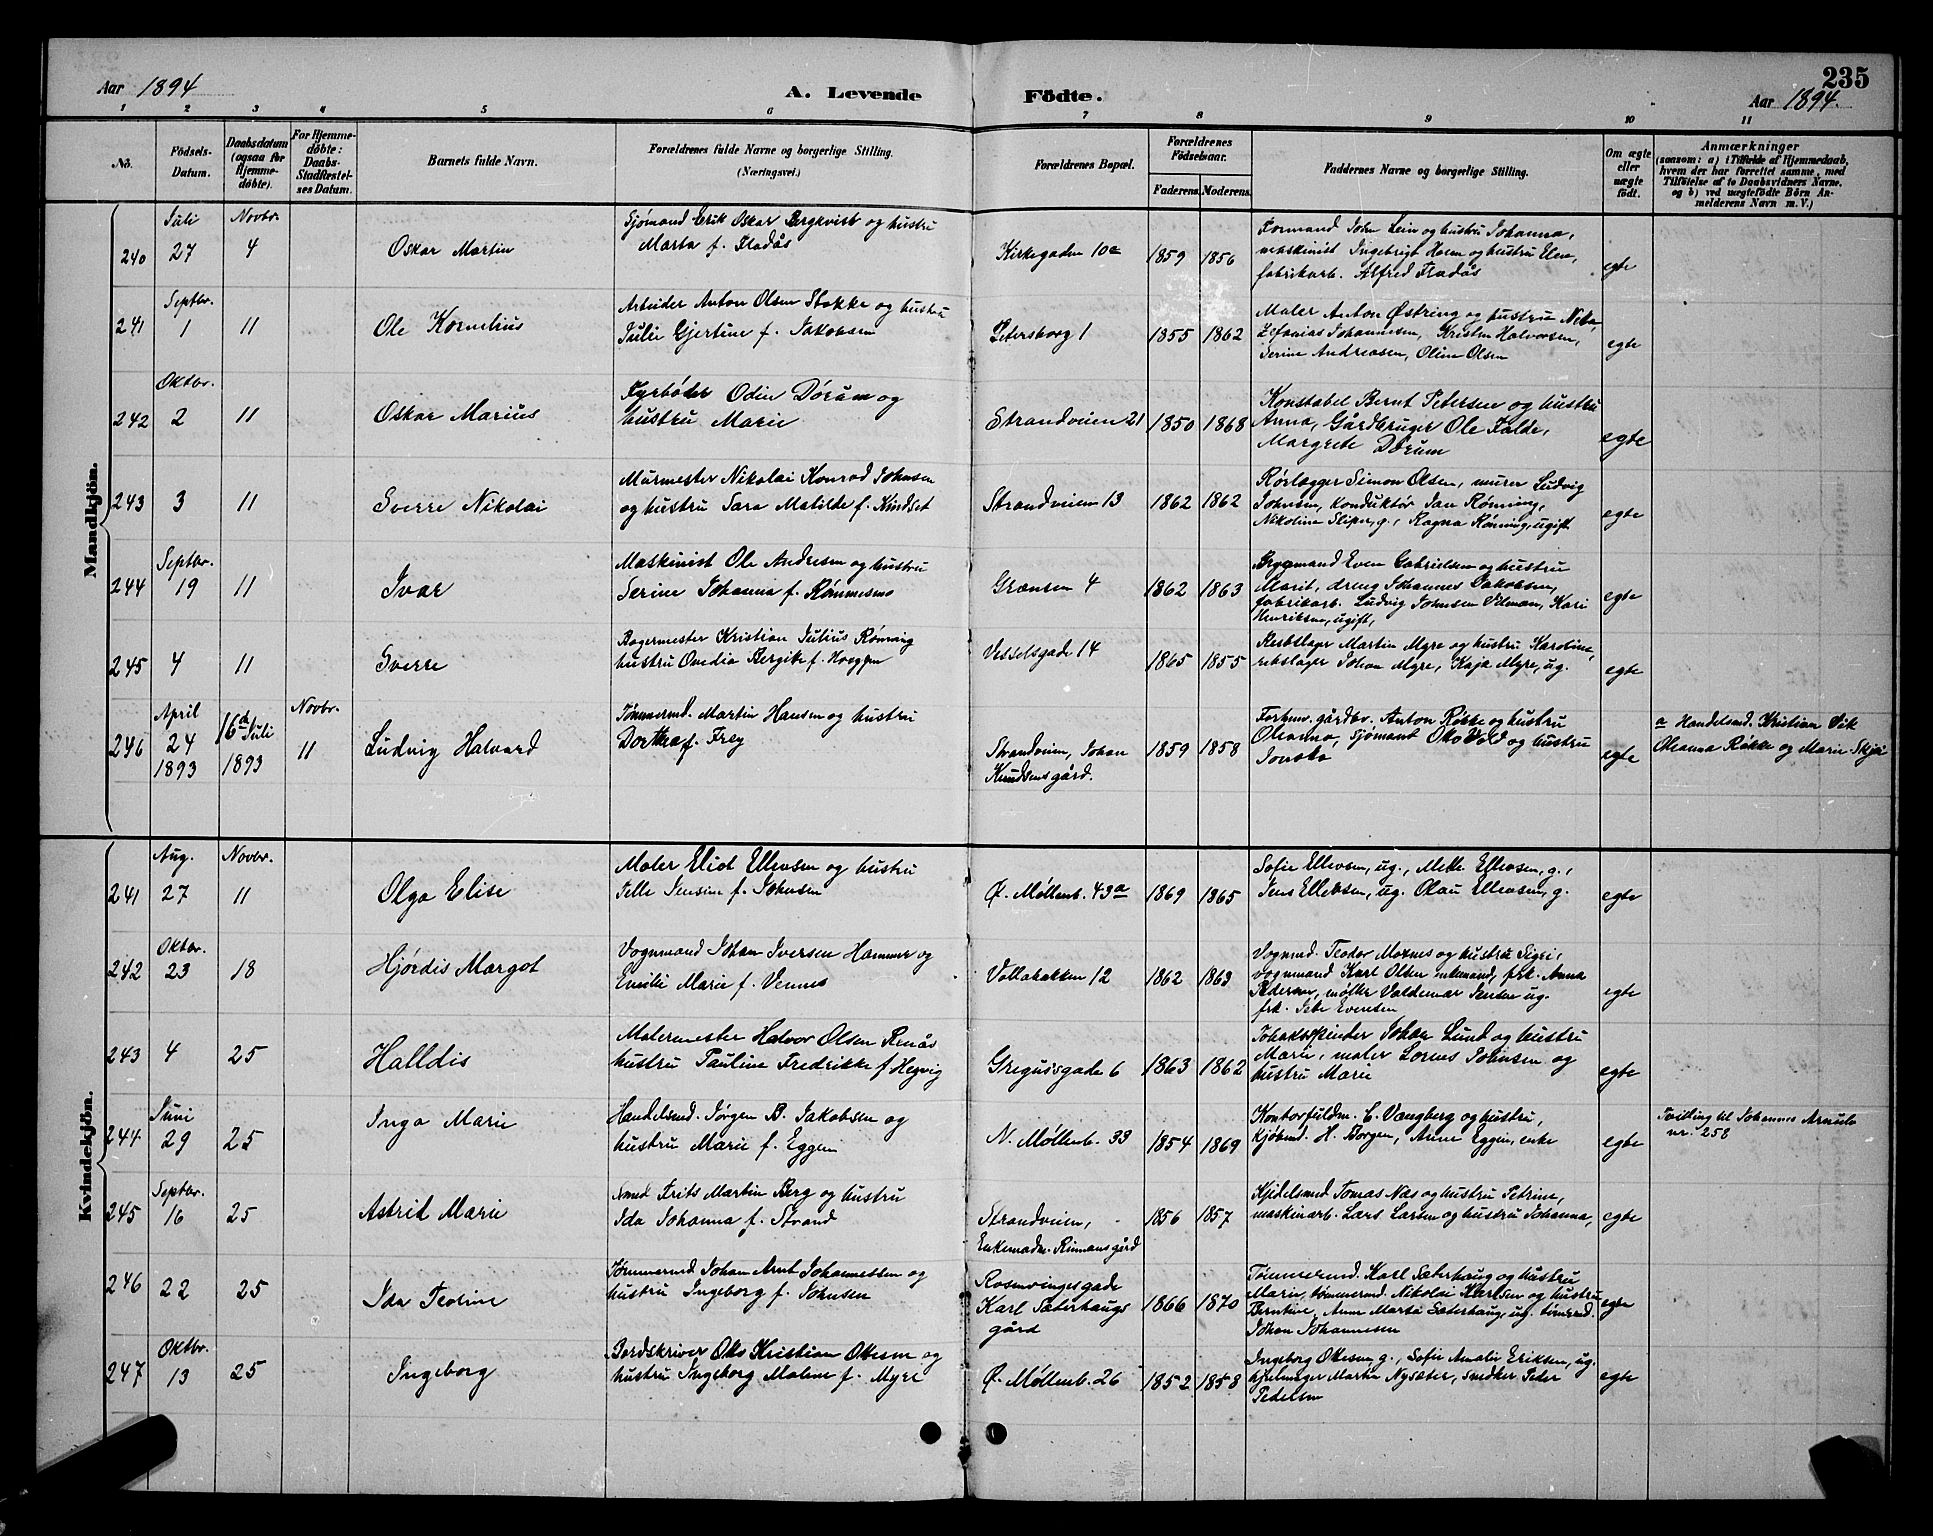 Aar 1894
A. Levende
Födte.
235
Aar 1894.
1 2 3 4 5 6 7 8 9 10 11
Nö.
Födsels-Datum.
Daabsdatum (ogsaa for Hjemmedöbte).
For Hjemmedöbte: Daabs-Stadfæstelses Datum.
Barnets fulde Navn.
Forældrenes fulde Navne og borgerlige Stilling.
(Næringsvei.)
Forældrenes Bopæl.
Forældrenes Födselsaar.
Faderens. Moderens.
Faddernes Navne og borgerlige Stilling.
Om ægte eller uægte födt.
Anmærkninger
(saasom: a) i Tilfælde af Hjemmedaab,
hvem der har forrettet samme, med
Tilföielse af to Daabsvidners Navne,
og b) ved uægtefödte Börn An-
melderens Navn m. V.)
Mandkjön.
240 Juli 27 Novbr. 4 Oskar Martin
Sjømand Erik Oskar Bergkvist og hustru
Marta f. Fladås
Kirkegaden 10a 1859 1856
Formand John Lein og hustru Johanna,
maskinist Ingebrigt Hoem og hustru Elen,
fabrikarb. Alfred Fladås
egte
241 Septbr. 1 11 Ole Kornelius
Arbeider Anton Olsen Stokke og hustru
Julie Gjertine f. Jakobsen
Petersborg 1 1855 1862
Maler Anton Østring og hustru
Zefanias Johannesen, Kristen Halvorsen,
Serine Andreasen, Oline Olsen
egte
242 Oktbr. 2 11 Oskar Marius
Fyrbøder Odin Dørum og
hustru Marie
Strandveien 21 1850 1868
Konstabel Bernt Petersen og hustru
Anna, Gårdbruger Ole Falde,
Margrete Dørum
egte
243 3 11 Sverre Nikolai
Murmester Nikolai Konrad Johnsen
og hustru Sara Matilde f. Kindset
Strandveien 13 1862 1862
Rørlægger Simon Olsen, murer Ludvig
Johnsen, Konduktør Jan Rønning,
Nikoline Sliper, g., Ragna Rønning, ugift
egte
244 Septbr. 19 11 Ivar
Maskinist Ole Andresen og hustru
Serine Johanna f. Rømmesmo
Grænsen 4 1862 1863
Brygmand Even Gabrielsen og hustru
Marit, dreng Johannes Jakobsen,
fabrikarb. Ludvig Johnsen, Kari
Henriksen, ugift,
egte
245 4 11 Sverre
Bagermester Kristian Julius Rønning
hustru Ovedia Bergite f. Hoeggen
Vesselsgade 14 1865 1855
Rebslager Martin Myre og hustru Karoline,
rebslager Johan Myre, Kaja Myre, ug.
egte
246 April 24 1893 16d Juli 1893 Novbr. 11 Ludvig Halvard
Tømmermd. Martin Hansen og hustru
Dorthea f. Frey
Strandveien, Johan
Knudsens gård.
1859 1858
Forhenv. gårdbr. Anton Røkke og hustru
Oleanna, Sjømand Vold og hustru
egte
a Handelsmd. Kristian
Oleanna Røkke og Marie
Kvindekjön.
241 Aug. 27 Novbr. 11 Olga Elise
Maler Eliot Ellevsen og hustru
Pelle Jensine f. Johnsen
Ø. Møllenb. 43a 1869 1865
Sofie Ellevsen, ug., Mette Ellevsen, g.,
Jens Ellevsen, ug. Olau Ellevsen, g.
egte
242 Oktbr. 23 18 Hjørdis Margot
Vognmand Johan Iversen Hammer og
Emilie Marie f. Vennes
Vollabakken 12 1862 1863
Vognmd. Teodor Moxnes og hustru Sigri,
vognmand Karl Olsen enkemand, frk. Anna
Pedersen, møller Valdemar Jensen ug.
frk. Evensen
egte
243 4 25 Halldis
Malermester Halvor Olsen Renås
hustru Pauline Fredrikke f. Hegvig
Gregusgade 6 1863 1862
Tobakspinder Johan Lund og hustru
Marie, maler Lorens Johnsen og
hustru Marie
egte
244 Juni 29 25 Inga Marie
Handelsmd. Jørgen B. Jakobsen og
hustru Marie f. Eggen
N. Møllenb. 33 1854 1869
Kontorfuldm. C. Vangberg og hustru,
Kjøbmd. H. Borgen, Anne Eggen, enke
egte
Tvilling til Johannes Arnulv
nr. 258
245 Septbr. 16 25 Astrid Marie
Smed Frits Martin Berg og hustru
Ida Johanna f. Strand
Strandveien,
Enkemadm. Riimans gård
1856 1857
Kjedelsmed Tomas Næs og hustru Petrine,
maskinarb. Lars Larsen og hustru Johanna,
egte
246 22 25 Ida Teoline
Tømmermd Johan Arnt Johannessen og
hustru Ingeborg f. Johnsen
Rosenvingesgade
Karl Sæterhaugs
gård
1866 1870
Tømmermd. Karl Sæterhaug og hustru
Marie, tømmermd. Nikolai Karlsen og hustru
Berntine, Anne Marta Sæterhaug, ug. tømmermd.
Johan Johannesen
egte
247 Oktbr. 13 25 Ingeborg
Bordskriver Oto Kristian Otesen og
hustru Ingeborg Malene f. Myre
Ø. Møllenb. 26 1852 1858
Ingeborg Otesen g., Sofie Amalie Eriksen, ug.
Martin Nysæter, snedker Peder
Pedersen
egte